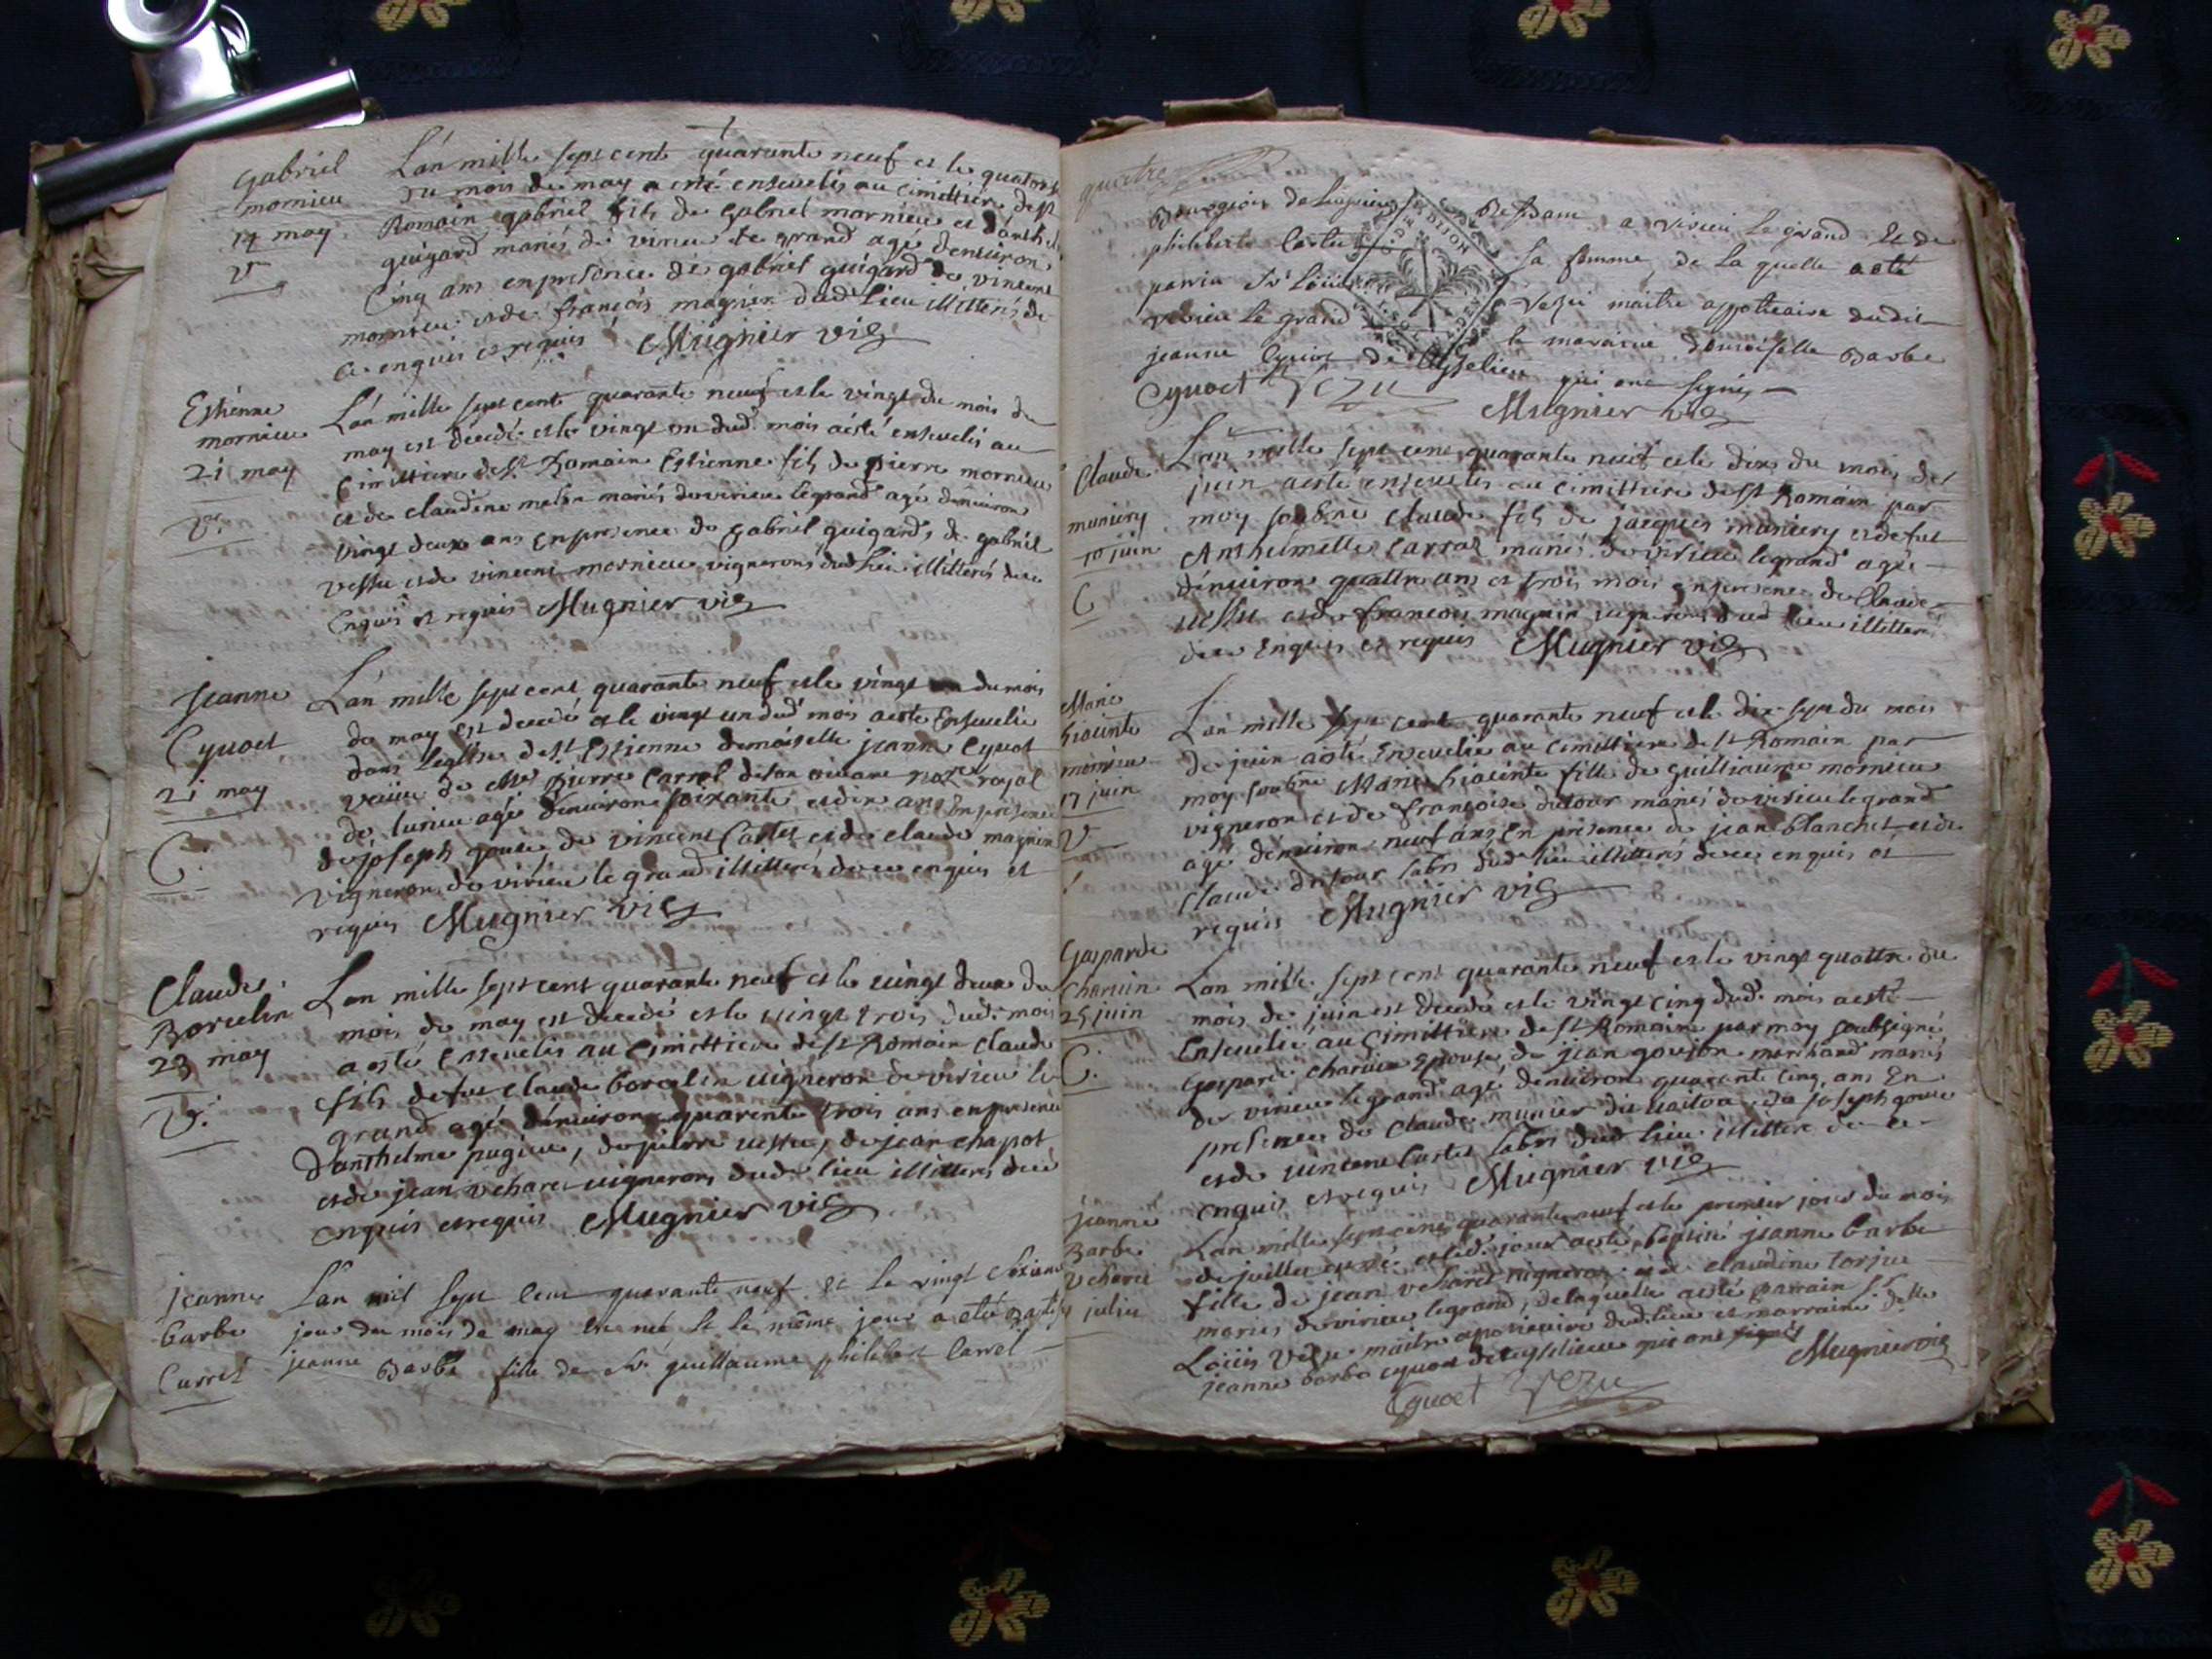 Gabriel
mornieu
14 may
V
L'an mille sept cent quarante neuf et le quatorze
du mois de may a esté ensevelis au cimittiere de st
Romain gabriel fils de gabriel mornieu et d'anth
guigard mariés de virieu le grand agé denviron
Cinq ans en presence de gabriel guigard de vincent
mornieu et de françois magnin dud lieu illitterés de
ce enquis et requis Mugnier vic
Estienne
mornieu
21 may
V.
L'an mille sept cent quarante neuf et le vingt du mois de
may est décedé et le vingt un dud. mois a esté ensevelis au
Cimittiere de st Romain Estienne fils de pierre mornieu
et de claudine melin mariés de virieu legrand agé denviron
vingt deux ans en presence de gabriel guigard, de gabriel
vessu et de vincent mornieu vignerons dud lieu illitterés de ce
Enquis et requis Mugnier vic
Jeanne
Cyuoct
21 may
C.
L'an mille sept cent quarante neuf et le vingt du mois
de may est decedé et le vingt un dud mois a esté Ensevelie
dans l'eglise de st Estienne demoiselle jeanne Cyuot
veüve de Me Pierre Carrel de son vivant notre royal
de agé denviron soixante et dix ans En presence
de joseph goure de vincent Cartet et de claude magnin
vignerons de virieu le grand illitterés de ce enquis et
requis Mugnier vic
Claude
Borcelin
23 may
V.
Lan mille sept cent quarante neuf et le vingt deux du
mois de may est decedé et le vingt trois dud. mois
a esté Ensevelis au Cimittiere de st Romain Claude
fils de feu Claude borcelin vigneron de virieu le
grand agé denviron quarente trois ans en presence
d'anthelme pugieu, de pierre vessu, de jean chapot
et de jean veharet vignerons dud. lieu illitterés de ce
enquis et requis Mugnier vic
jeanne
barbe
Carrel
L'an mil sept cent quarante neuf et le vingt sixieme
jour du mois de may est née et le même jour a eté Baptisé
jeanne Barbe fille de Sr. guillaume philibert Carrel
quatre
Bourgeois de de dame a virieu le grand et de
philiberte Cartet sa femme, de la quelle a eté
parin Sr Loüis Vezu maitre appoticaire dudit
virieu le grand la maraine demoiselle Barbe
jeanne Cyuoct de qui ont signés
GEN. DE DIJON
Cyuoct Vezu
Mugnier vic
Claude
muniery
10 juin
C
L'an mille sept cent quarante neuf et le dix du mois de
juin a esté ensevelis au cimittiere de st Romain par
moy soubné claude fils de jacques muniery et de feue
Anthelmette Carral mariés de virieu legrand agé
denviron quattre ans et trois mois en presence de Claude
vessu et de francois magnin vignerons dud lieu illitterés
de ce Enquis et requis Mugnier vic
Marie
hiacinte
mornieu
17 juin
V
L'an mille sept cent quarante neuf et le dix sept du mois
de juin a esté Ensevelie au cimittiere de st Romain par
moy soubné Marie hiacinte fille de guilliaume mornieu
vigneron et de Françoise dutour mariés de virieu le grand
agé denviron neuf ans En presence de jean blanchet et de
claude dutour labrs dud lieu illitterés de ce enquis et
requis Mugnier vic
Gasparde
Charvin
25 juin
C.
Lan mille sept cent quarante neuf et le vingt quattre du
mois de juin est decedé et le vingt cinq dud. mois a esté
Ensevelie au Cimittiere de st Romain par moy soubsigné
Gasparde charvin Epouse de jean goujon marchand mariés
de virieu legrand agé denviron quarante cinq ans En
presence de Claude munier dit et de joseph goure
et de vincent Cartet labrs dud lieu illitterés de ce
enquis et requis Mugnier vic
jeanne
Barbe
veharet
juliet
Lan mille sept cent quarante neuf et le premier jour du mois
de juillet est née et led. jour a esté baptisé jeanne barbe
fille de jean veharet vigneron et de claudine torju
mariés de virieu legrand, de laquelle a esté parrain Sr
Loüis vezu maitre apoticaire dud. lieu et marraine delle
jeanne barbe cyuoct qui ont signés
Cyuoct Vezu Mugnier vic